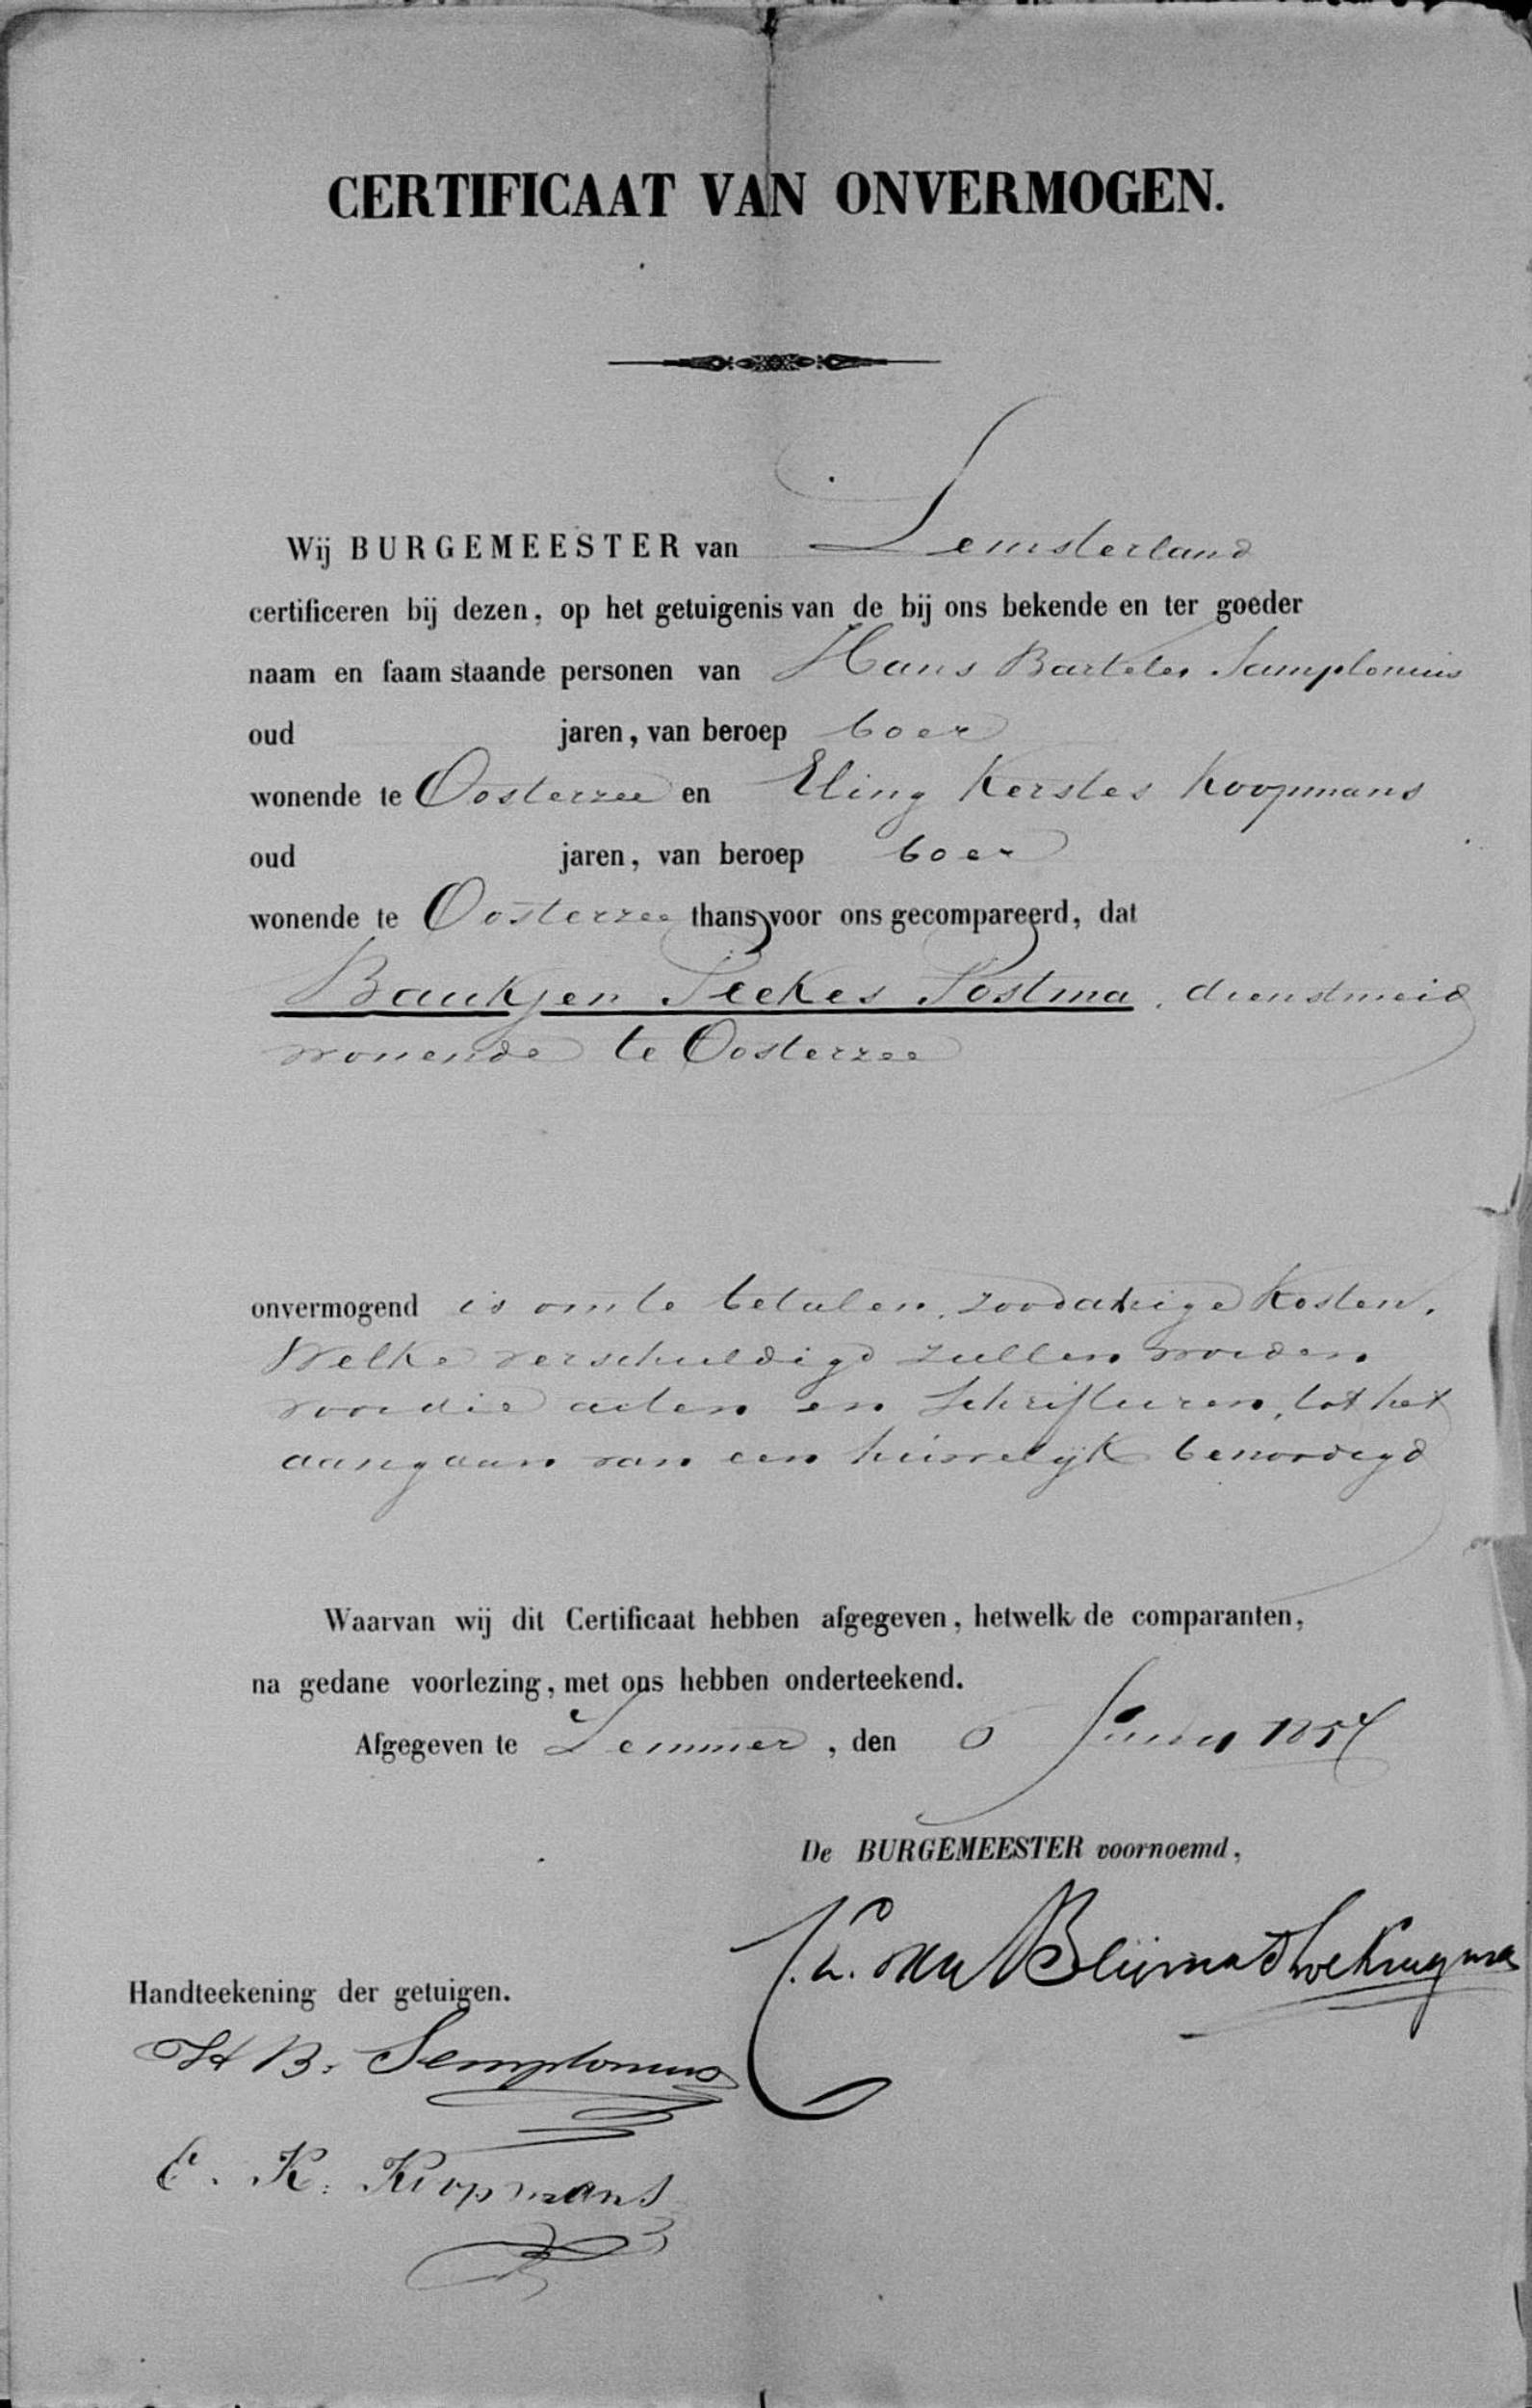 CERTIFICAAT VAN ONVERMOGEN.
Wij BURGEMEESTER van Lemsterland
certificeren bij dezen, op het getuigenis van de bij ons bekende en ter goeder
naam en faam staande personen van Hans Barteles Samplonius
oud jaren, van beroep boer
wonende te Oosterzee en Eling Kerstes Koopmans
oud jaren, van beroep boer
wonende te Oosterzee thans voor ons gecompareerd, dat
Baukjen Piekes Postma, dienstmeid
wonende te Oosterzee
onvermogend is om te betalen, zoodanige kosten,
Welke verschuldigd zullen worden
voor die acten en Schrifturen, tot het
aangaan van een huwelijk benoodigd
Waarvan wij dit Certificaat hebben afgegeven, hetwelk de comparanten,
na gedane voorlezing, met ons hebben onderteekend.
Afgegeven te Lemmer, den 6 Juny
De BURGEMEESTER voornoemd,
Handteekening der getuigen.
H B. Semplonius
E. K. Koopmans